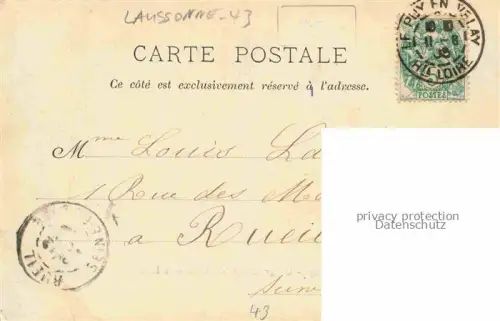 LAUSSONNE-43
LE PUY EN VELAY
HTE LOIRE
CARTE POSTALE
Ce côté est exclusivement réservé à l'adresse.
POSTES
Mme Louis La
1 Rue des Ma
a Rueil
RUEIL
privacy protection
Datenschutz
43